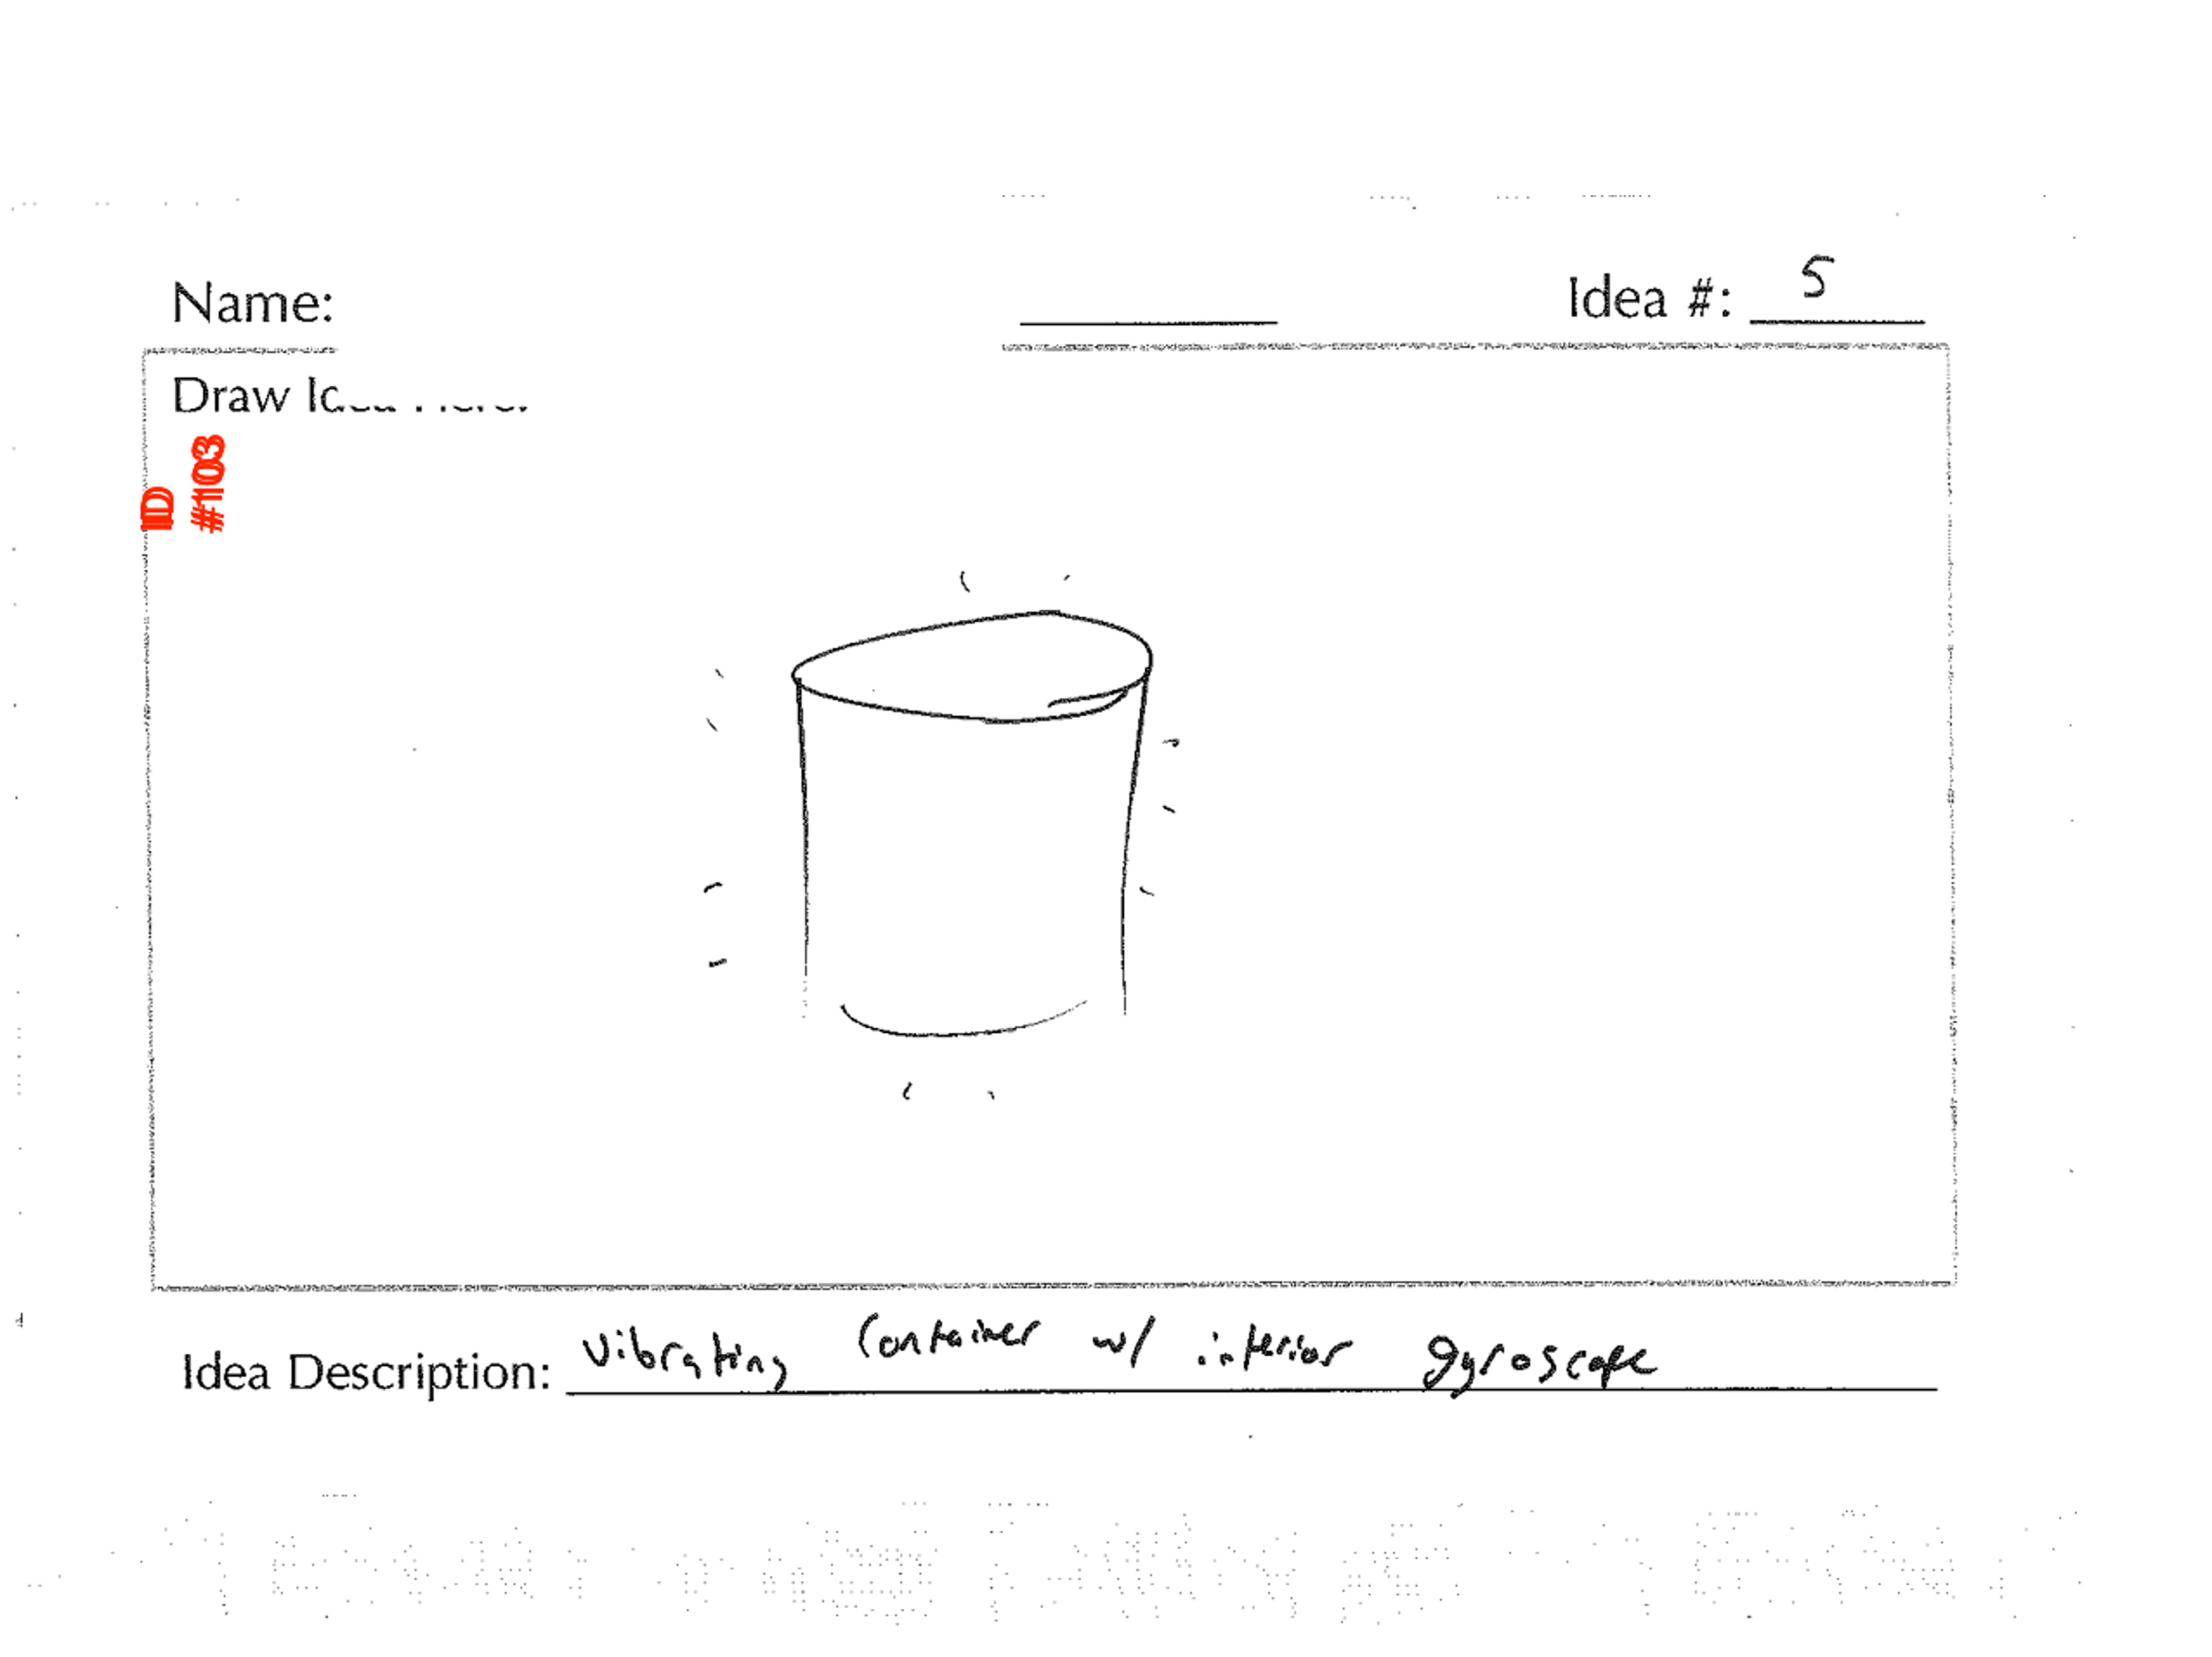 Name:
Idea #: 5
Draw
ID
#1103
Idea Description: vibrating container w/ interior gyroscope